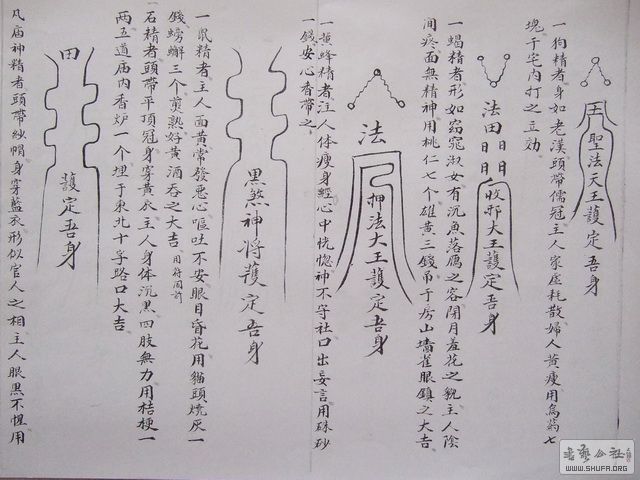 聖法天王護定吾身
一狗精者身如老漢頭帶儒冠主人家虛耗散婦人黄瘦用烏药七
塊于宅内打之立効
法田日日日日收邪大王護定吾身
一蝎精者形如窈窕淑女有沉魚落鴈之容閉月羞花之貌主人陰
间疼面無精神用桃仁七个雄黄三錢吊于房山墙雀眼鎮之大吉
法押法大王護定吾身
一黄蜂精者注人体瘦身輕心中恍惚神不守社口出妄言用硃砂
一錢安心香帶之
黑煞神将護定吾身
一鼠精者主人面黄常發惡心嘔吐不安眼目昏花用貓頭燒灰一
錢螃蠏三个煎熟好黄酒吞之大吉用符同前
石精者頭帶平頂冠身穿黄衣主人身体沉黑四肢無力用桔梗一
两五道庙内香炉一个埋于東北十字路口大吉
田護定吾身
凡庙神精者頭帶紗帽身穿藍衣形似官人之相主人眼黑不惺用
書藝公社
WWW.SHUFA.ORG